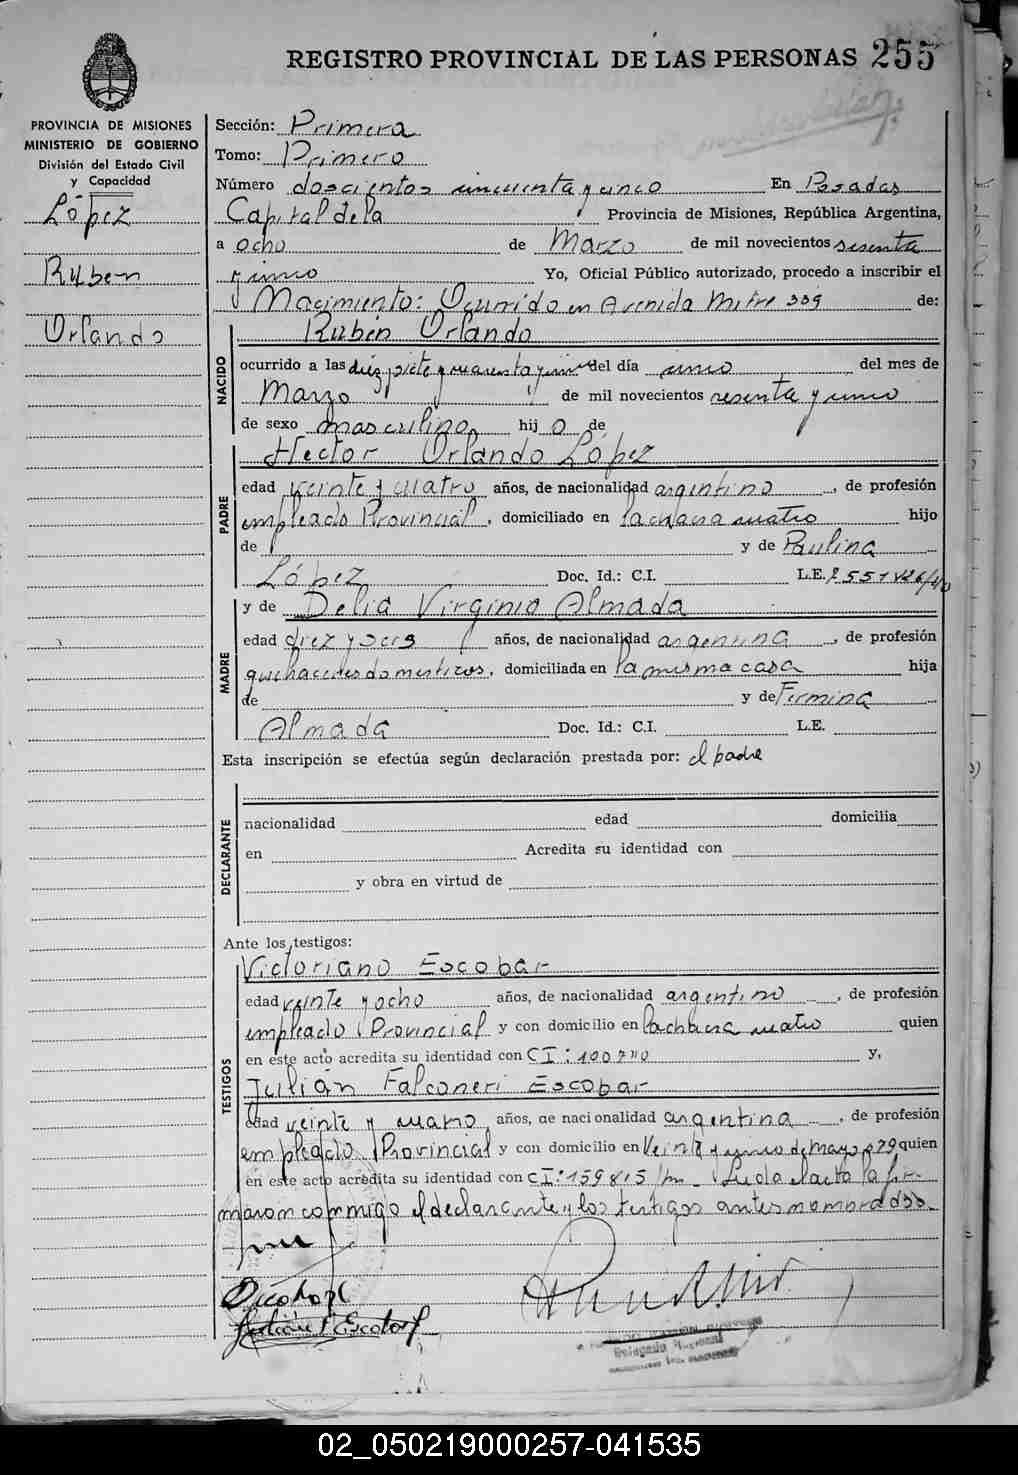 REGISTRO PROVINCIAL DE LAS PERSONAS 255
PROVINCIA DE MISIONES
MINISTERIO DE GOBIERNO
División del Estado Civil
y Capacidad
López
Ruben
Orlando
Sección: Primera
Tomo: Primero
Número doscientos cincuenta y cinco En Posadas
Capital de la Provincia de Misiones, República Argentina,
a ocho de Marzo de mil novecientos sesenta
y uno Yo, Oficial Público autorizado, procedo a inscribir el
Nacimiento: Ocurrido en Avenida Mitre 339 de:
NACIDO
Rubén Orlando
ocurrido a las diez y siete y cuarenta y del día uno del mes de
Marzo de mil novecientos sesenta y uno
de sexo masculino hij o de
PADRE
Hector Orlando López
edad veinte y cuatro años, de nacionalidad argentino, de profesión
empleado Provincial, domiciliado en la chacra cuatro hijo
de y de Paulina
López Doc. Id.: C.I. L.E.
y de Delia Virginia Almada
MADRE
edad diez y seis años, de nacionalidad argentina, de profesión
quehaceres domesticos, domiciliada en la misma casa hija
de y de Fermina
Almada Doc. Id.: C.I. L.E.
Esta inscripción se efectúa según declaración prestada por: el padre
DECLARANTE
nacionalidad edad domicilia
en Acredita su identidad con
y obra en virtud de
Ante los testigos:
TESTIGOS
Victoriano Escobar
edad veinte y ocho años, de nacionalidad argentino, de profesión
empleado Provincial y con domicilio en la chacra cuatro quien
en este acto acredita su identidad con CI: y,
Julián Falconeri Escobar
edad veinte y cuatro años, de nacionalidad argentina, de profesión
empleado Provincial y con domicilio en Veinte y cinco de Mayo 279 quien
en este acto acredita su identidad con CI: 159815 Leida el acta la fir-
maron conmigo el declarante y los testigos antes nombrados.
02_050219000257-041535